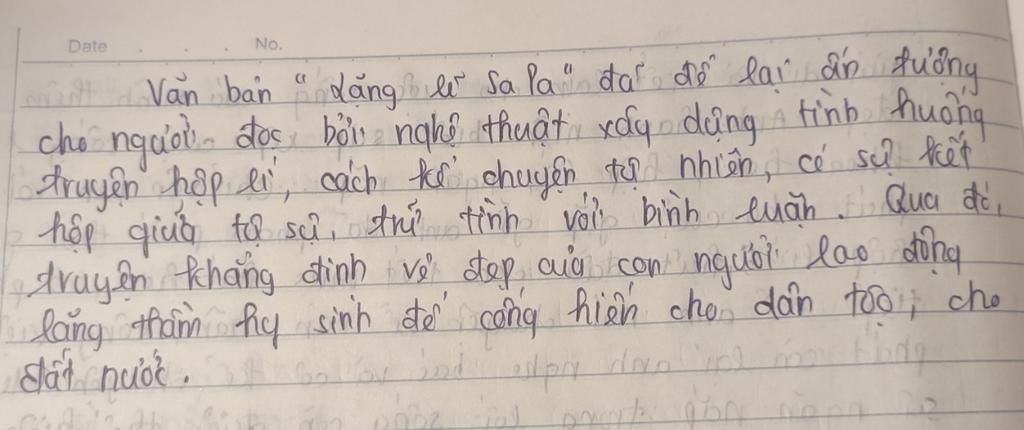 Date . . . No.
Văn bản "Lặng lẽ Sa Pa" đã để lại ấn tượng
cho người đọc bởi nghệ thuật xây dựng tình huống
truyện hợp lí, cách kể chuyện tự nhiên, có sự kết
hợp giữa tự sự, trữ tình với bình luận. Qua đó,
truyện khẳng định vẻ đẹp của con người lao động
lặng thầm hy sinh để cống hiến cho dân tộc, cho
đất nước.